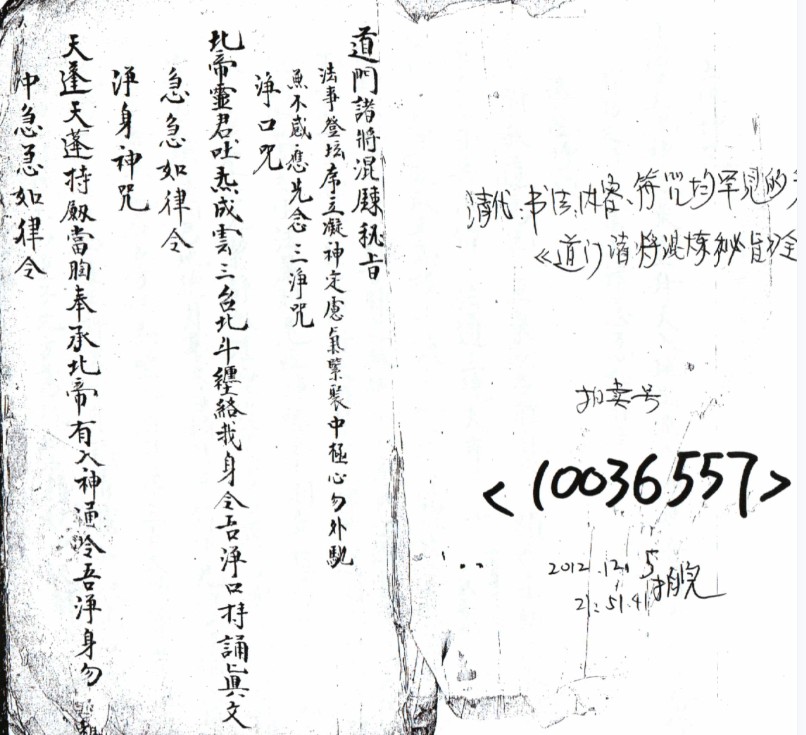 道門諸將混鍊秘旨
法事登坛席立凝神定慮氣擎聚中極心勿外馳
無不感應先念三淨咒
淨口咒
北帝靈君吐炁成雲三台北斗纏絡我身令吾淨口持誦真文
急急如律令
淨身神咒
天蓬天蓬持劔當胸奉承北帝有大神通令吾淨身勿
急急如律令
清代.书法.内容.符咒均罕见的
《道门诸将混炼秘旨》全
拍卖号
<10036557>
2012.12.5
21:51.41拍完